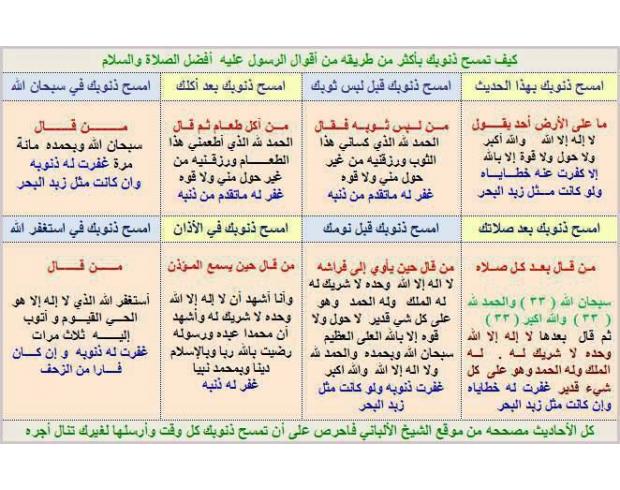 كيف تمسح ذنوبك بأكثر من طريقه من أقوال الرسول عليه أفضل الصلاة والسلام
امسح ذنوبك بهذا الحديث
ما على الأرض أحد يقول
لا إله إلا الله والله أكبر
ولا حول ولا قوة إلا بالله
إلا كفرت عنه خطاياه
ولو كانت مثل زبد البحر
امسح ذنوبك قبل لبس ثوبك
من لبس ثوبه فقال
الحمد لله الذي كساني هذا
الثوب ورزقنيه من غير
حول مني ولا قوه
غفر له ماتقدم من ذنبه
امسح ذنوبك بعد أكلك
من أكل طعام ثم قال
الحمد لله الذي أطعمني هذا
الطعام ورزقنيه من
غير حول مني ولا قوه
غفر له ماتقدم من ذنبه
امسح ذنوبك في سبحان الله
من قال
سبحان الله وبحمده مائة
مرة غفرت له ذنوبه
وان كانت مثل زبد البحر
امسح ذنوبك بعد صلاتك
من قال بعد كل صلاه
سبحان الله ( ٣٣ ) والحمد لله
( ٣٣ ) والله اكبر ( ٣٣ )
ثم قال بعدها لا إله إلا الله
وحده لا شريك له . له
الملك وله الحمد وهو على كل
شيء قدير غفرت له خطاياه
وإن كانت مثل زبد البحر
امسح ذنوبك قبل نومك
من قال حين يأوي إلى فراشه
لا إله إلا الله وحده لا شريك له
له الملك وله الحمد وهو
على كل شي قدير لا حول ولا
قوه إلا بالله العلي العظيم
سبحان الله وبحمده والحمد لله
ولا إله إلا الله والله اكبر
غفرت ذنوبه ولو كانت مثل
زبد البحر
امسح ذنوبك في الأذان
من قال حين يسمع المؤذن
وأنا أشهد أن لا إله إلا الله
وحده لا شريك له وأشهد
أن محمدا عبده ورسوله
رضيت بالله ربا وبالإسلام
دينا وبمحمد نبيا
غفر له ذنبه
امسح ذنوبك في استغفر الله
من قال
أستغفر الله الذي لا إله إلا هو
الحي القيوم و أتوب
إليه ثلاث مرات
غفرت له ذنوبه و إن كان
فارا من الزحف
كل الأحاديث مصححه من موقع الشيخ الألباني فاحرص على أن تمسح ذنوبك كل وقت وأرسلها لغيرك تنال أجره